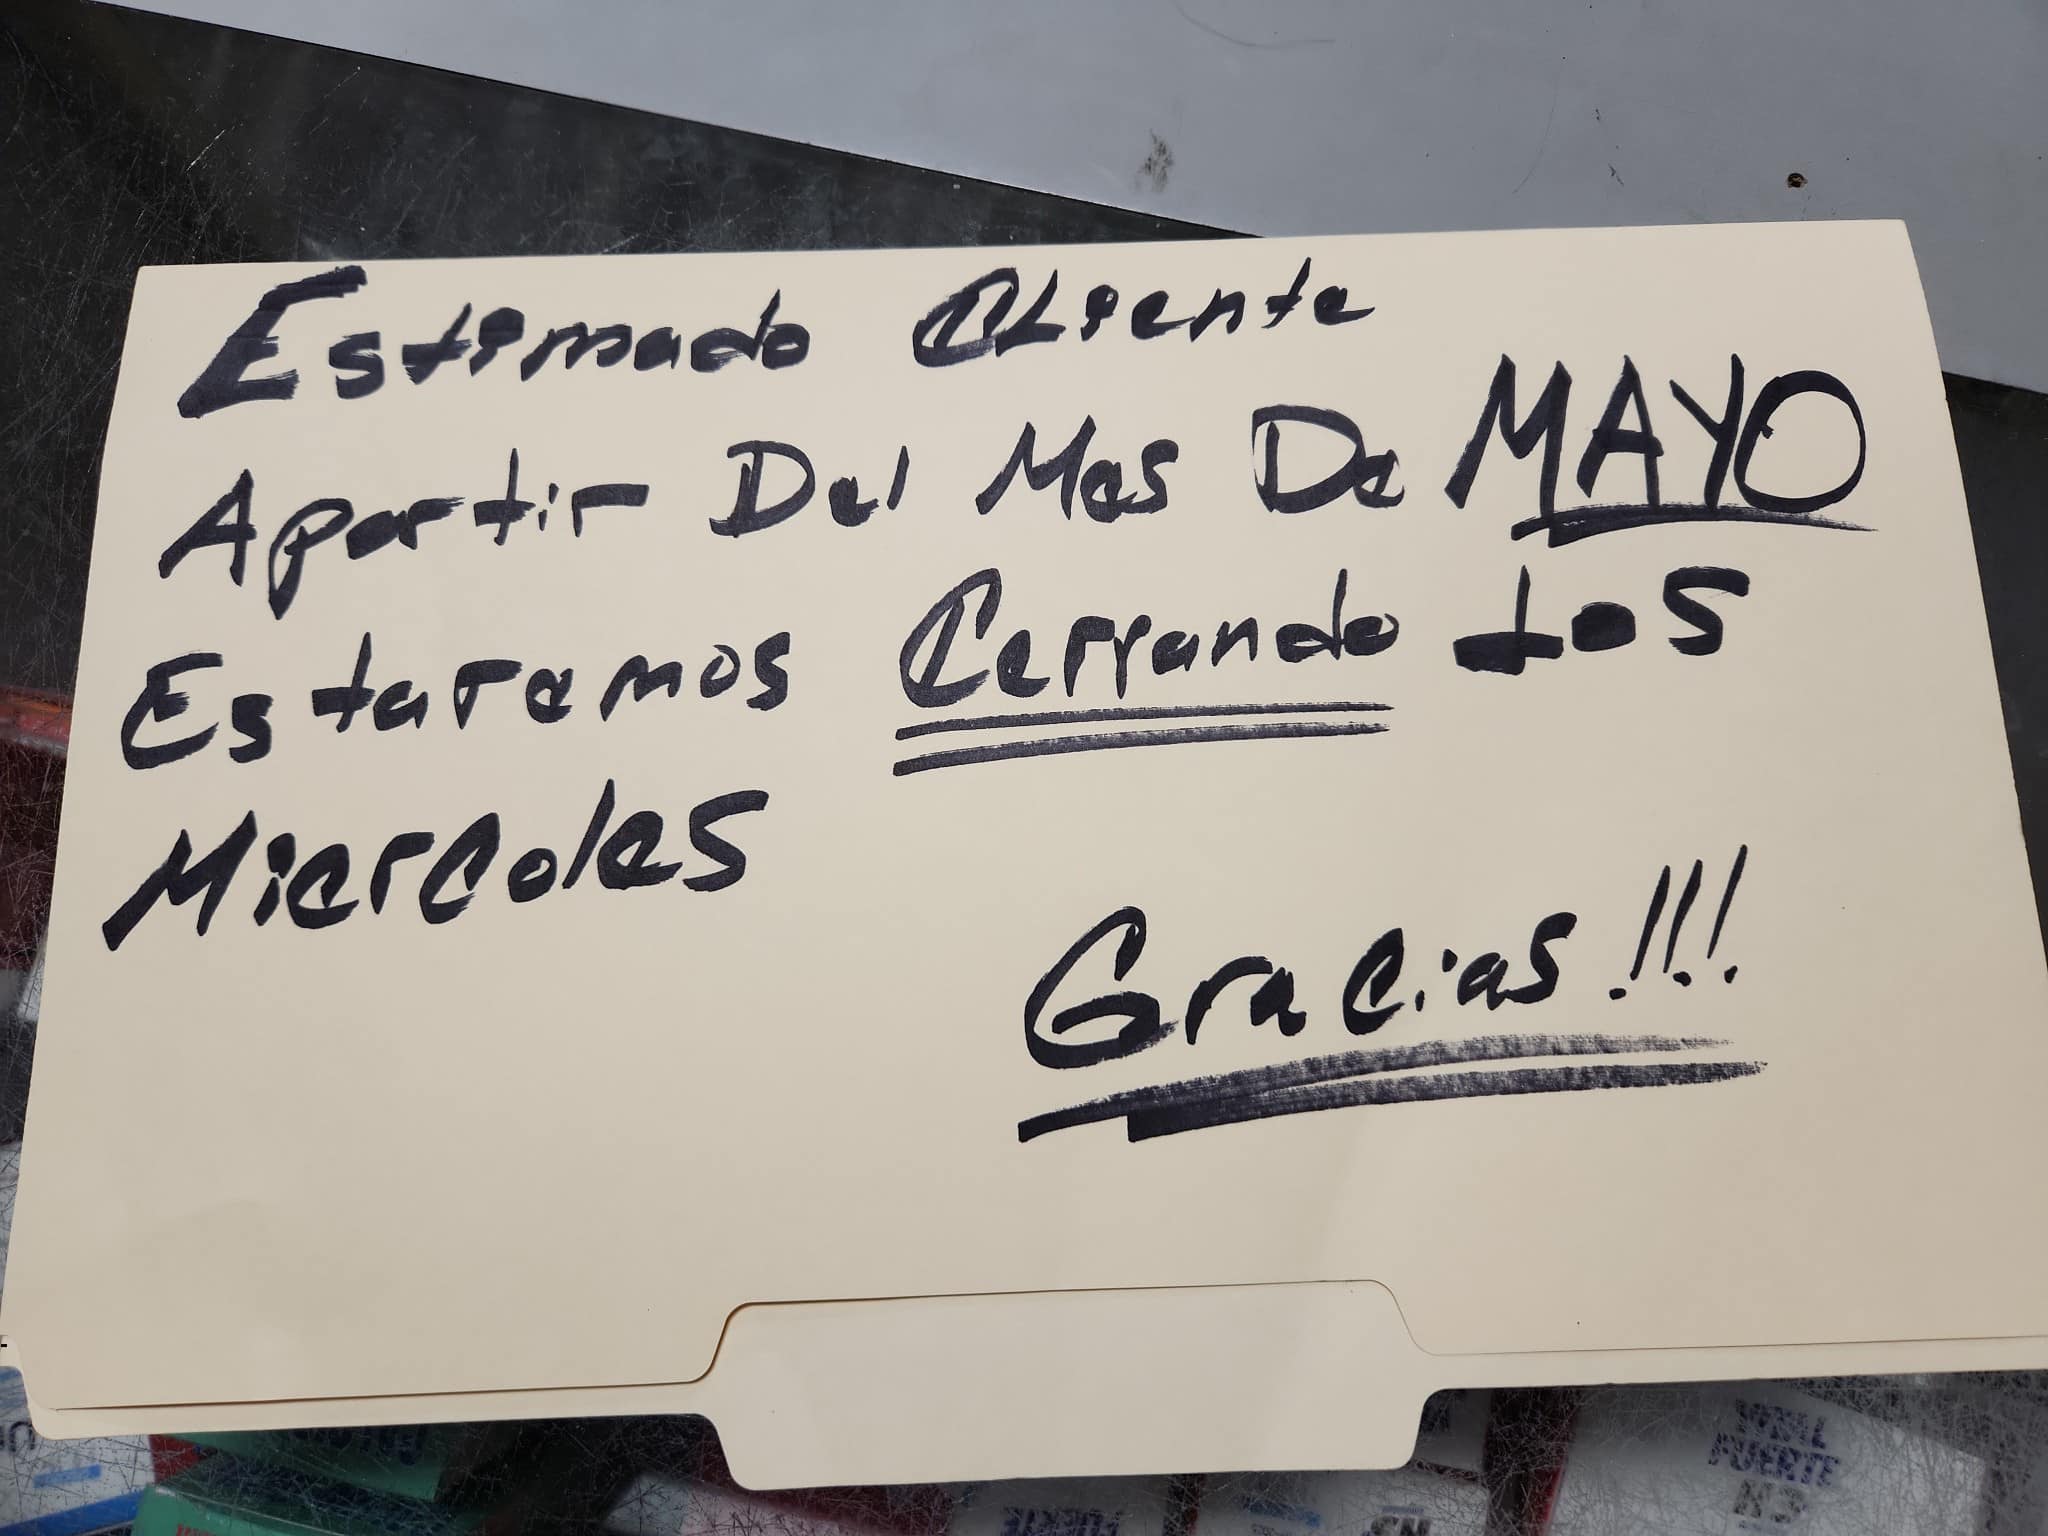 Estimado CLiente
Apartir Del Mes De MAYO
Estaremos Cerrando Los
Miercoles
Gracias!!!